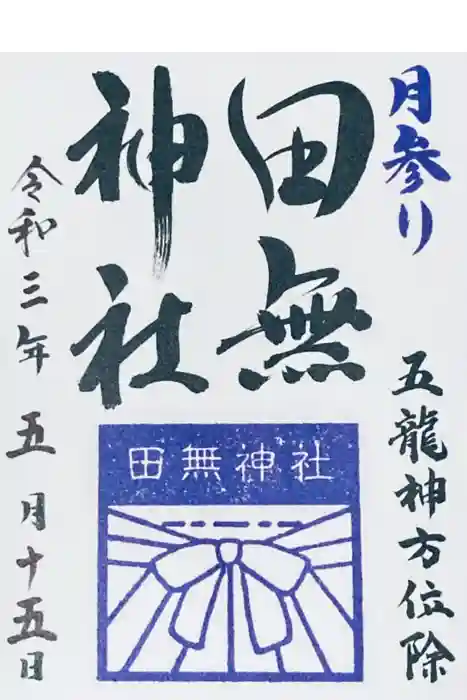 月参り
五龍神方位除
田無
神社
田無神社
令和三年五月十五日